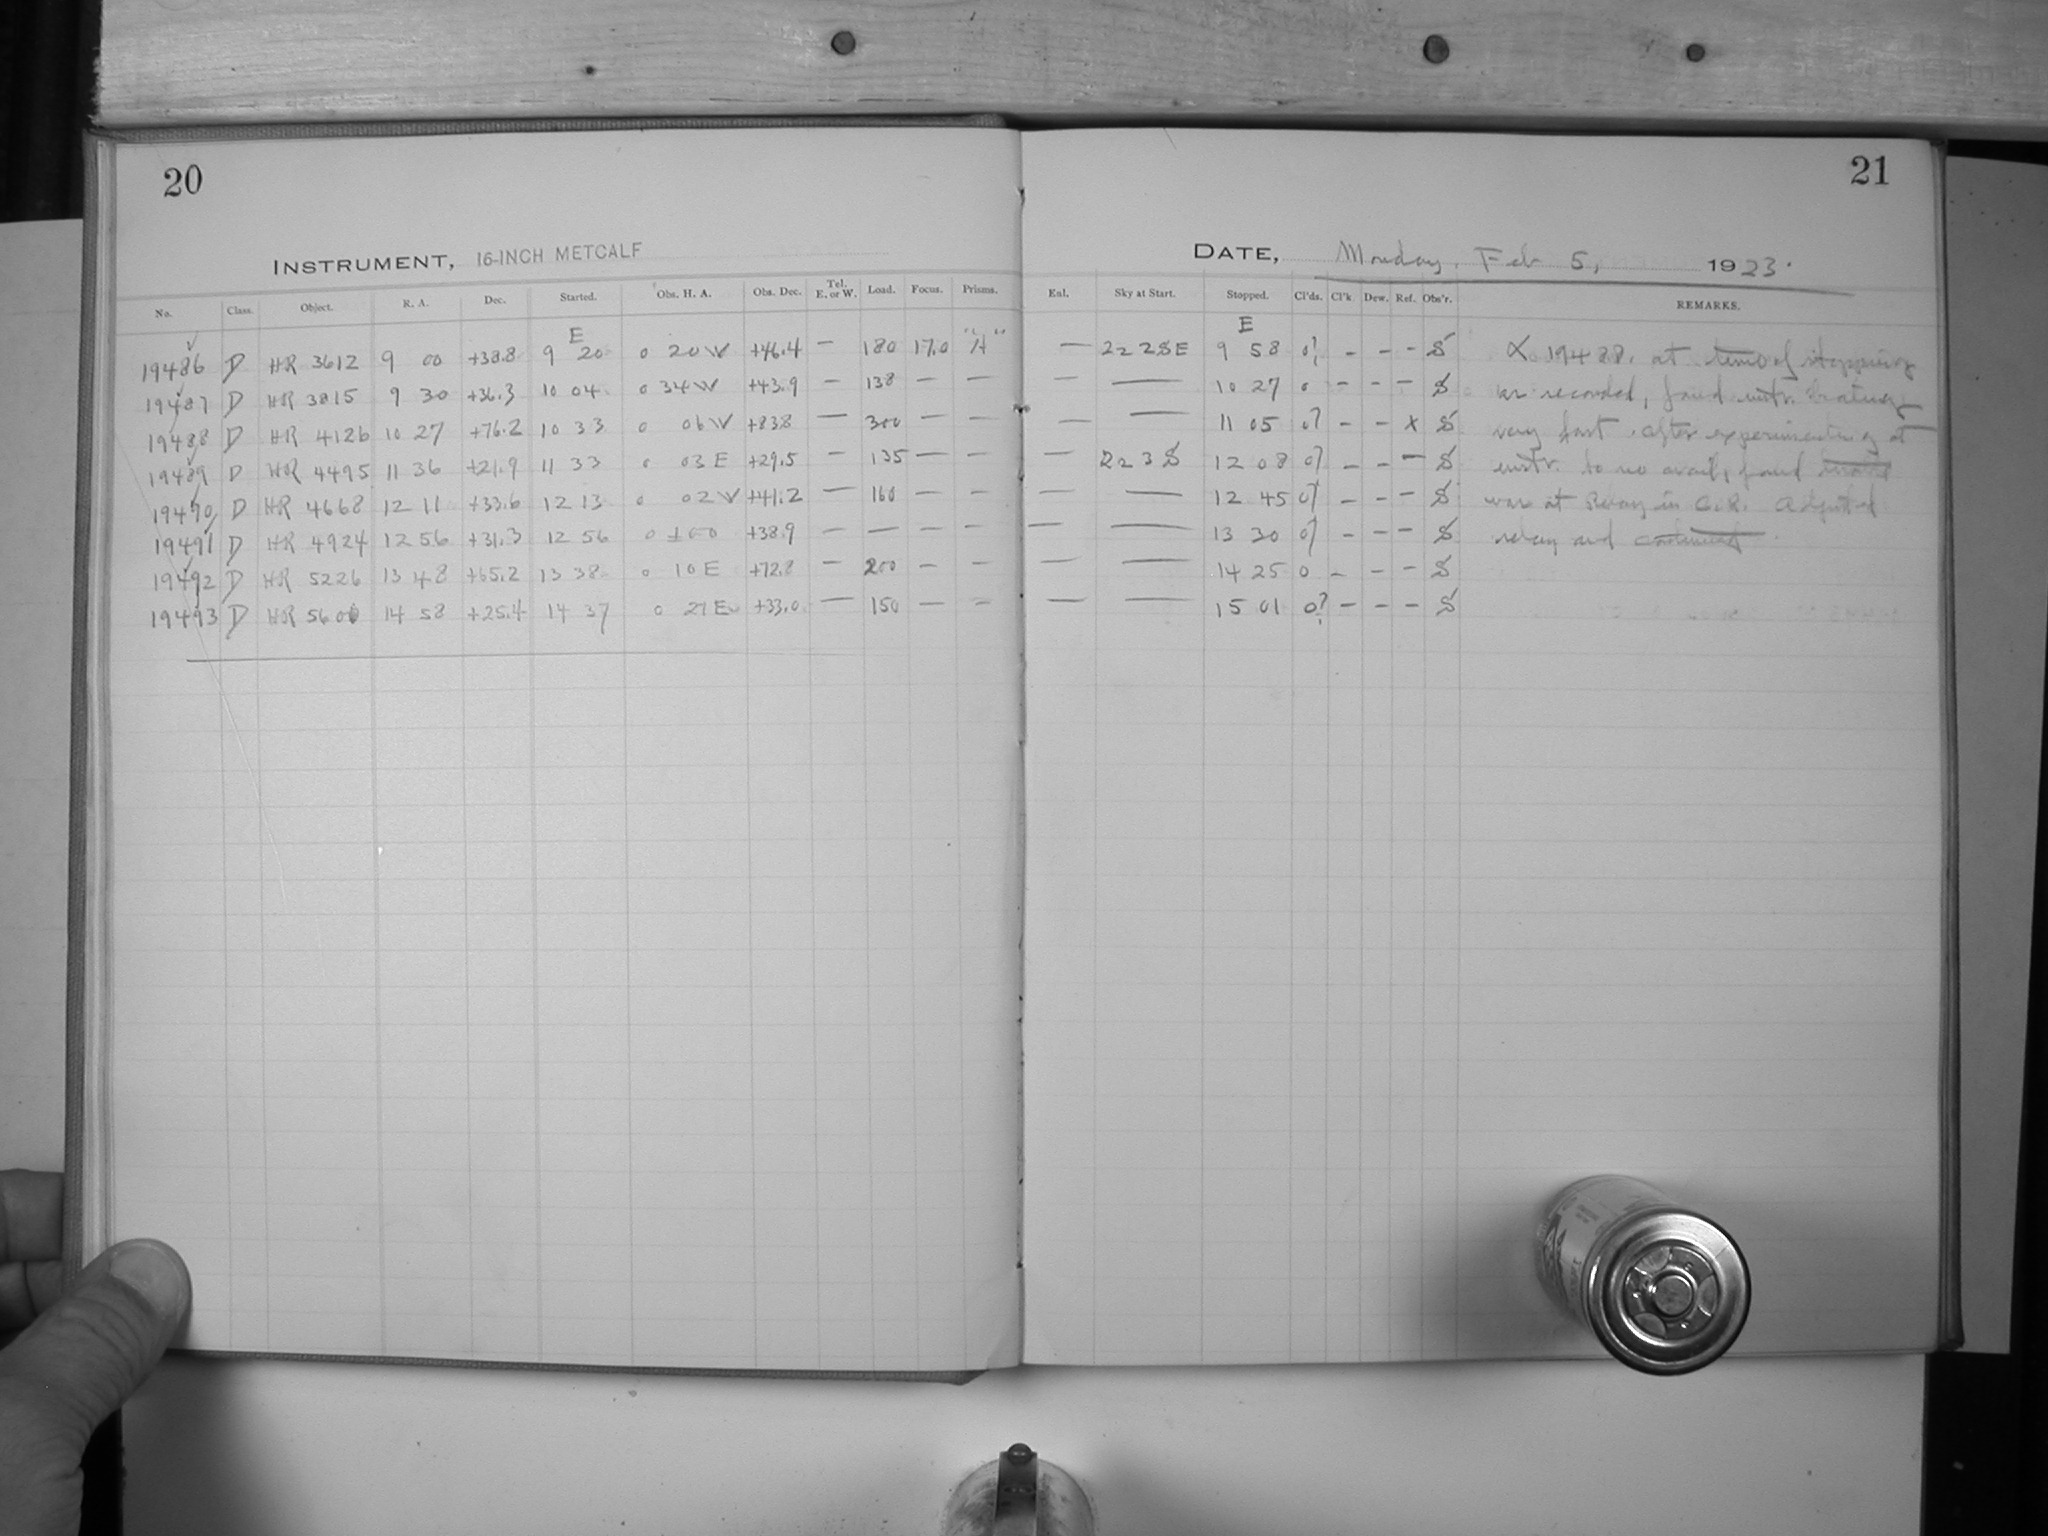 20
21
INSTRUMENT, 16-INCH METCALF
DATE, Monday, Feb 5, 1923.
No. Class. Object. R. A. Dec. Started. Obs. H. A. Obs. Dec. Tel. E. or W. Load. Focus. Prisms. Enl. Sky at Start. Stopped. Cl'ds. Cl'k. Dew. Ref. Obs'r. REMARKS.
E E
19486 D HR 3612 9 00 +38.8 9 20 0 20 W +46.4 — 180 17.0 "A" — 222SE 9 58 0? - - - S X 19488. at time of stopping
19487 D HR 3815 9 30 +36.3 10 04 0 34 W +43.9 — 138 — — — — 10 27 0 - - - S as recorded, found instr. beating
19488 D HR 4126 10 27 +76.2 10 33 0 06 W +83.8 — 300 — — — — 11 05 0? - - X S very fast. After experimenting at
19489 D HR 4495 11 36 +21.9 11 33 0 03 E +29.5 — 135 — — — 223 S 12 08 0? - - - S instr. to no avail, found
19490 D HR 4668 12 11 +33.6 12 13 0 02 W +41.2 — 160 — — — — 12 45 0? - - - S was at Relay in C.R. Adjusted
19491 D HR 4924 12 56 +31.3 12 56 0 ±00 +38.9 — — — — — — 13 30 0? - - - S relay and continued.
19492 D HR 5226 13 48 +65.2 13 38 0 10 E +72.8 — 200 — — — — 14 25 0 - - - S
19493 D HR 5600 14 58 +25.4 14 37 0 21 E +33.0 — 150 — — — — 15 01 0? - - - S